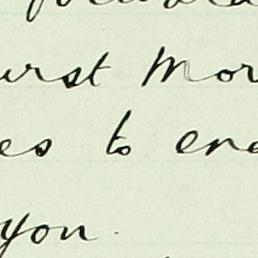 urst Mor
es to en
you.